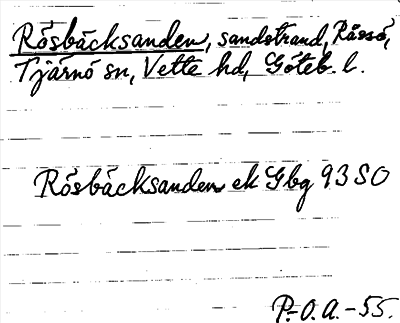 Rösbäcksanden, sandstrand, Råssö,
Tjärnö sn, Vette hd, Göteb. l.
Rösbäcksanden ek Gbg 93 SO
P.-O.A.-55.